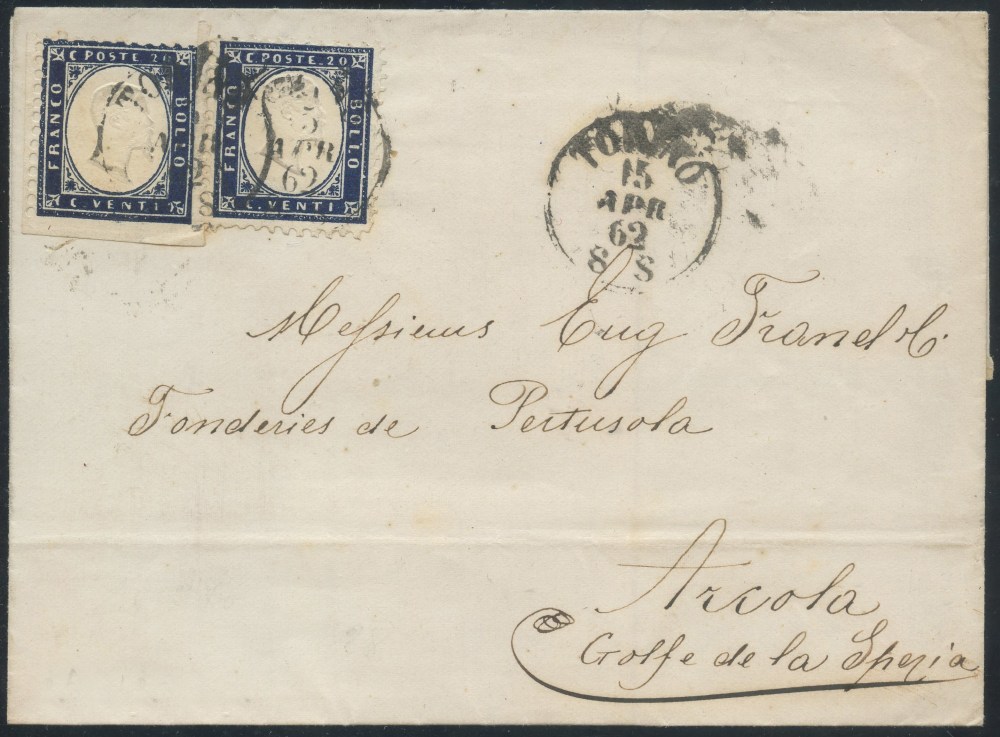 C. POSTE. 20
FRANCO
BOLLO
C. VENTI
C. POSTE. 20
FRANCO
BOLLO
C. VENTI
APR
62
TORINO
15
APR
62
8 S
Messieurs Eug
Fonderies de Pertusola
Arcola
Golfe de la Spezia